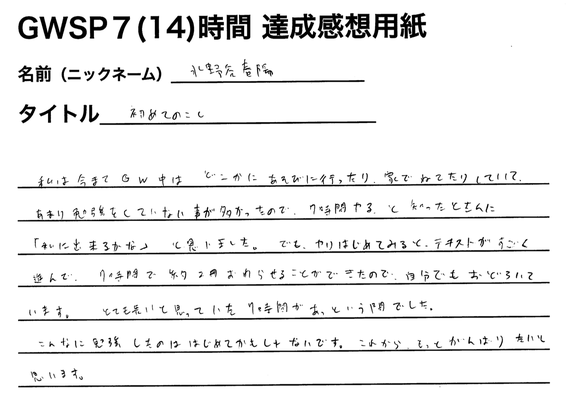 GWSP7(14)時間 達成感想用紙
名前（ニックネーム） 北野谷春陽
タイトル 初めてのこと
私は今までGW中は どこかにあそびに行ったり、家でねてたりしていて、
あまり勉強をしていない事が多かったので、7時間やる、と知ったときに
「私に出来るかな」 と思いました。 でも、やりはじめてみると、テキストがすごく
進んで、 7時間で 約2冊おわらせることができたので、自分でもおどろいて
います。 とても長いと思っていた7時間があっという間でした。
こんなに勉強したのははじめてかもしれないです。これから、もっとがんばりたいと
思います。